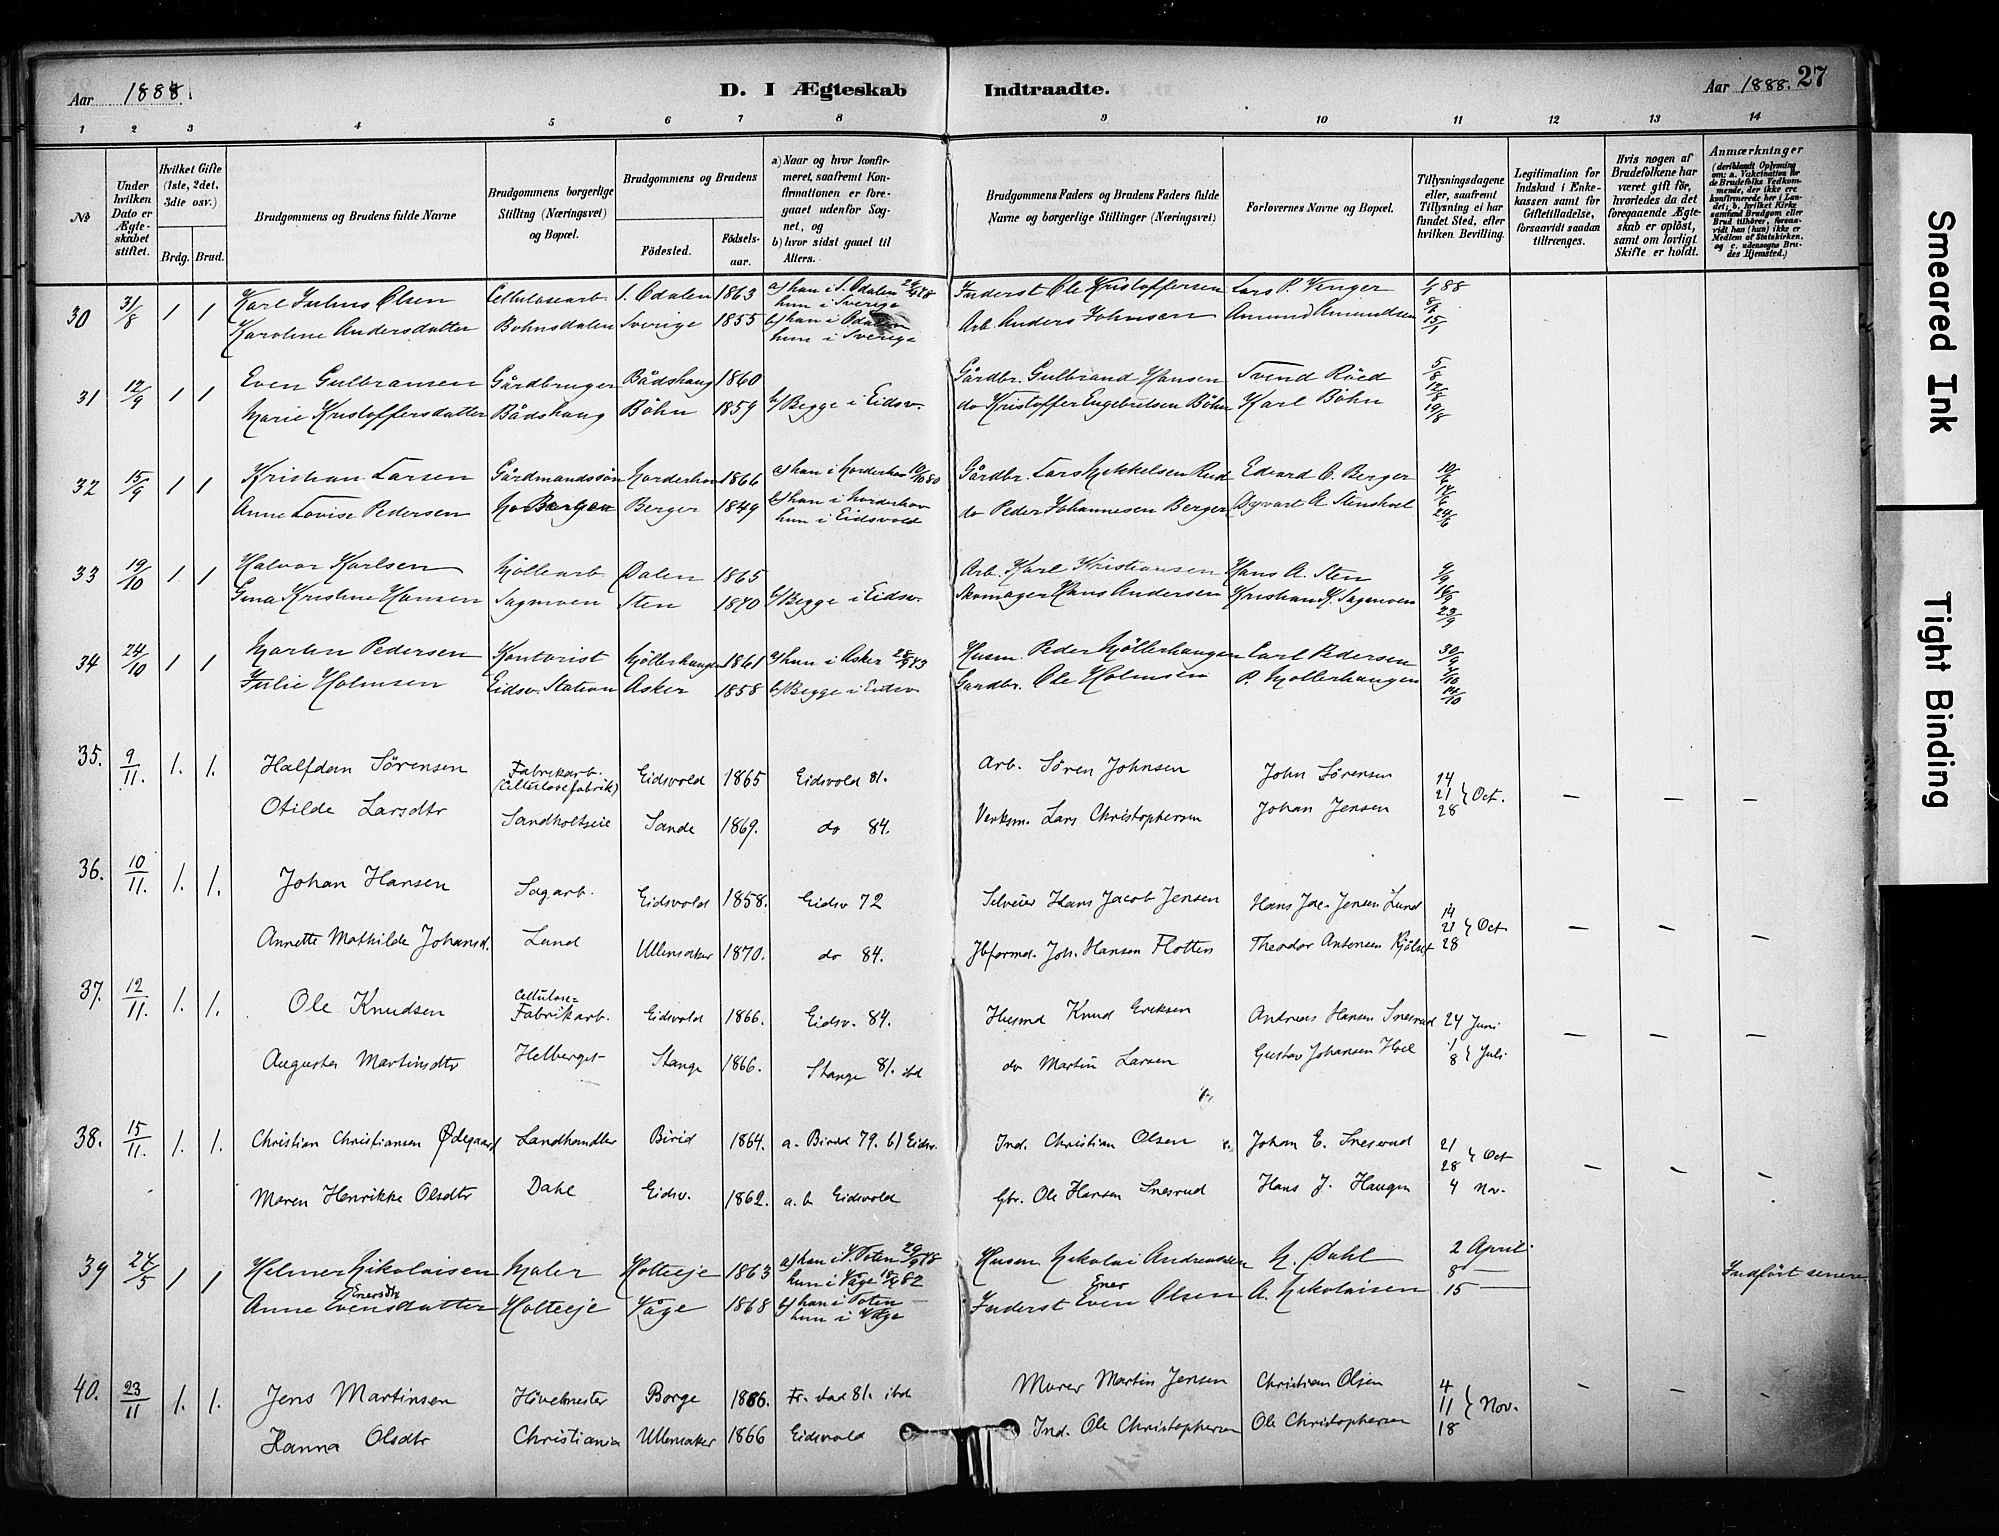 Aar 1888.
D. I Ægteskab Indtraadte.
Aar 1888. 27
1 2 3 4 5 6 7 8 9 10 11 12 13 14
№
Under hvilken Dato er Ægteskabet stiftet.
Hvilket Gifte (1ste, 2det, 3die osv.)
Brdg. Brud.
Brudgommens og Brudens fulde Navne
Brudgommens borgerlige Stilling (Næringsvei) og Bopæl.
Brudgommens og Brudens
Födested. Födsels-aar.
a) Naar og hvor konfirmeret, saafremt Konfirmationen er foregaaet udenfor Sognet, og
b) hvor sidst gaaet til Alters.
Brudgommens Faders og Brudens Faders fulde Navne og borgerlige Stillinger (Næringsvei)
Forlovernes Navne og Bopæl.
Tillysningsdagene eller, saafremt Tillysning ei har fundet Sted, efter hvilken Bevilling.
Legitimation for Indskud i Enkekassen samt for Giftetilladelse, forsaavidt saadan tiltrænges.
Hvis nogen af Brudefolkene har været gift før, hvorledes da det foregaaende Ægteskab er opløst, samt om lovligt Skifte er holdt.
Anmærkninger
(deriblandt Oplysning om: a. Vakcination for de Brudefolks Vedkommende, der ikke ere konfirmerede her i Landet; b. hvilket Kirkesamfund Brudgom eller Brud tilhører, forsaavidt han (hun) ikke er Medlem af Statskirken, og c. udensogns Brudes Hjemsted.)
30 31/8 1 1 Karl Julius Olsen Cellulosearb. S. Odalen 1863 a) han i S. Odalen Inderst Ole Kristoffersen Lars P. Venger
hun i Sverige
Karoline Andersdatter Bohnsdalen Sverige 1855 b) han i Odalen Arb. Anders Johnsen Amund Amundsen
hun i Sverige
31 12/9 1 1 Even Gulbransen Gårdbruger Bådshaug 1860 Gårdbr. Gulbrand Hansen Svend Röed 5/8
12/8
Marie Kristoffersdatter Bådshaug Böhn 1859 b) Begge i Eidsv. do Kristoffer Engebretsen Böhn Karl Böhn 19/8
32 15/9 1 1 Kristian Larsen Gårdmandssön Norderhov 1866 a) han i Norderhov Gårdbr. Lars Mikkelsen Rud Edvard O. Berger 10/6
17/6
Anne Lovise Pedersen Berger 1849 b) han i Norderhov do Peder Johannesen Berger A. Stenshoel 24/6
hun i Eidsvold
33 19/10 1 1 Halvor Karlsen Möllearb Dalen 1865 Arb. Karl Kristiansen Hans A. Sten 9/9
16/9
Gina Kristine Hansen Sagmoen Sten 1870 b) Begge i Eidsv. Skomager Hans Andersen Kristian K. Sagmoen 23/9
34 24/10 1 1 Martin Pedersen Kontorist Möllerhaugen 1861 a) hun i Asker Husm. Peder Möllerhaugen Carl Pedersen 30/9
7/10
Julie Holmsen Eidsv. Station Asker 1858 b) Begge i Eidsv Gardbr. Ole Holmsen P. Möllerhaugen 14/10
35. 9/11. 1. 1. Halfdan Sørensen Fabrikarb. (Cellulosefabrik) Eidsvold 1865 Eidsvold 81. Arb. Søren Johnsen John Sørensen 14
21 } Oct. — — —
Otilde Larsdtr Sandholtseie Sande 1869. do 84. Verksm. Lars Christophersen Johan Jensen 28
36. 10/11. 1. 1. Johan Hansen Sagarb. Eidsvold 1858. Eidsv 72 Selveier Hans Jacob Jensen Hans Jac. Jensen Lund 14
21 } Oct — — —
Annette Mathilde Johansd. Lund Ullensaker 1870. do 84. Jbformd. Joh. Hansen Flotten Theodor Antonsen Kjölset 28
37. 12/11. 1. 1. Ole Knudsen Cellulose=Fabrikarb. Eidsvold 1866. Eidsv. 84. Husmd Knud Eriksen Andreas Hansen Snesrud 24 Juni
1 — — —
Augusta Martinsdtr Helberget Stange 1866. Stange 81. ibd do Martin Larsen Gustav Johansen Hoel 8 } Juli
38. 15/11. 1. 1. Christian Christiansen Ødegaard Landhandler Birid 1864. a. Birid 79. b) Eidsv. Ind. Christian Olsen Johan E. Snesrud 21
28 } Oct — — —
Maren Henrikke Olsdtr Dahl Eidsv. 1862. a. b Eidsvold Gbr. Ole Hansen Snesrud Hans J. Haugen 4 Nov.
39 24/5 1 1 Helmer Nikolaisen Maler Holteeje 1863 a) han i V. Toten Husm. Nikolai Andreassen N. Dahl 2 April
hun i Våge 8 — Indført senere
Enersdtr Ener
Anne Evensdatter Holteeje Våge 1868 b) han i Toten Inderst Even Olsen A. Nikolaisen 15 —
hun i Våge
40. 23/11 1. 1. Jens Martinsen Hövelmester Borge 1866. Fr.stad 81. ibd Murer Martin Jensen Christian Olsen 4
11 } Nov. — — —
Hanna Olsdtr Christiania Ullensaker 1866 Eidsvold Ind. Ole Christophersen Ole Christophersen 18
Smeared Ink
Tight Binding